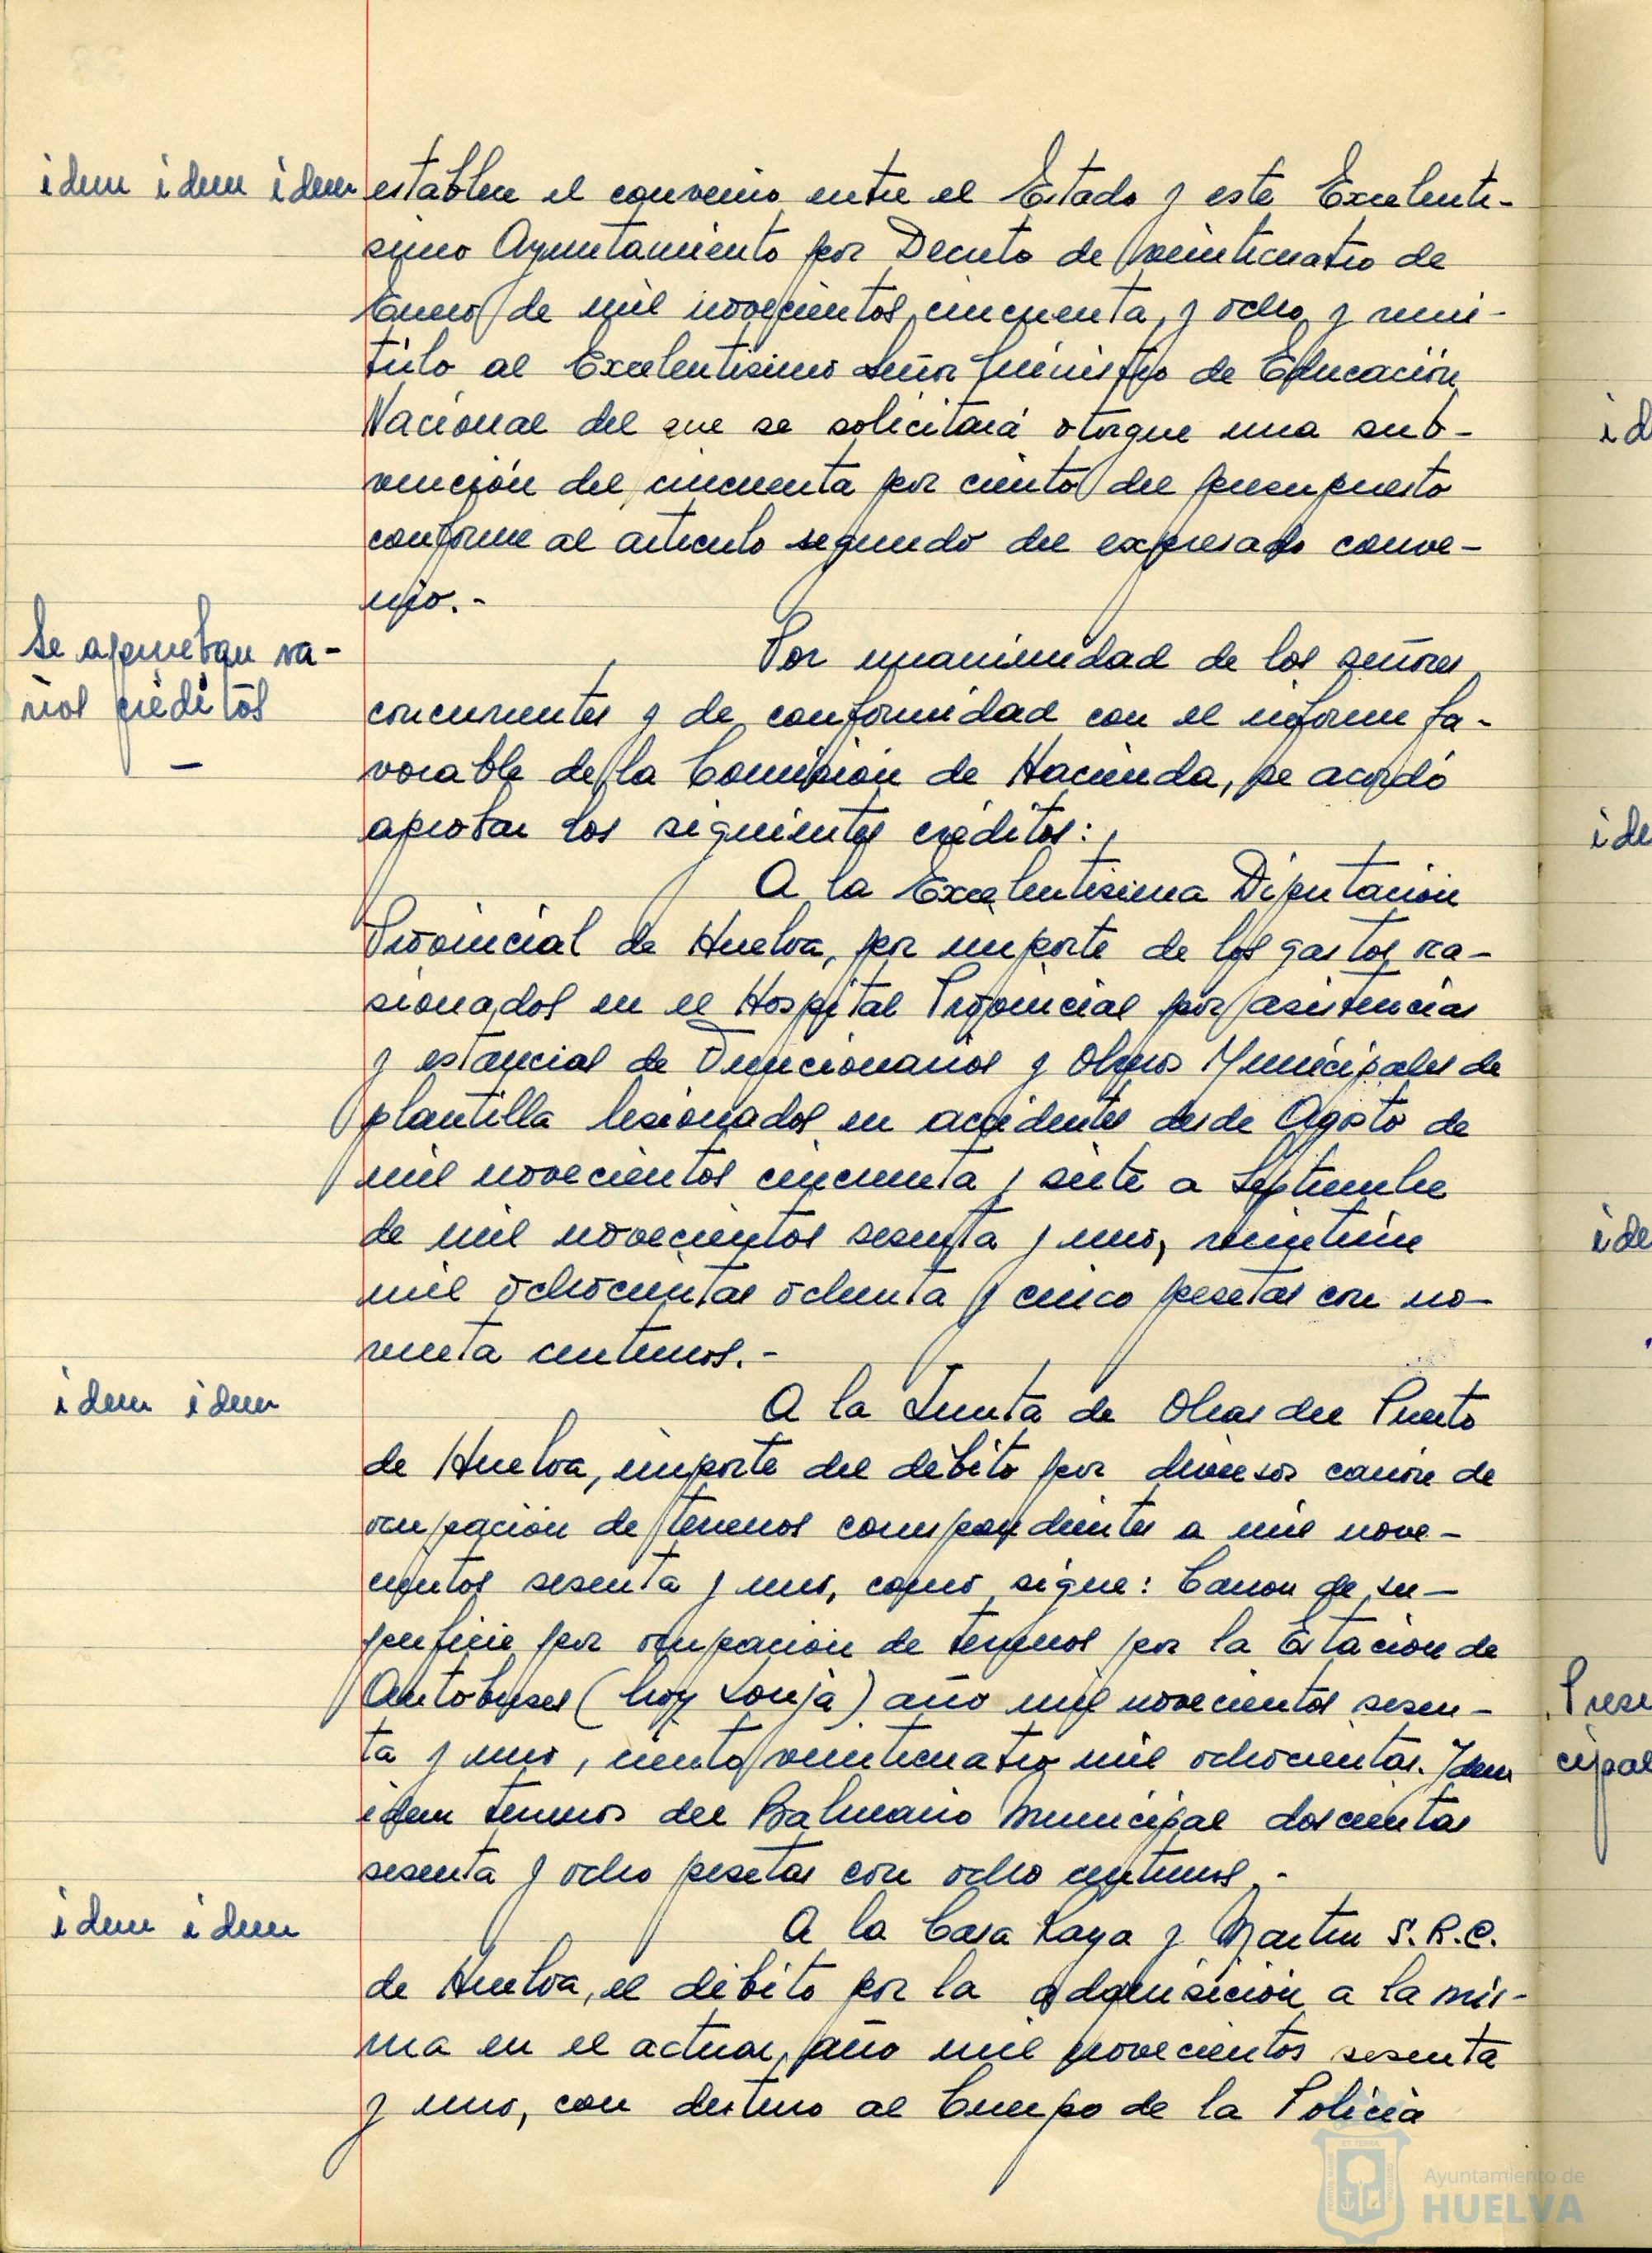 idem idem idem
establece el convenio entre el Estado y este Excelentí-
simo Ayuntamiento por Decreto de veinticuatro de
Enero de mil novecientos cincuenta y ocho y remi-
tirlo al Excelentísimo Señor Ministro de Educación
Nacional del que se solicitará otorgue una sub-
vención del cincuenta por ciento del presupuesto
conforme al artículo segundo del expresado conve-
nio.-
Se aprueban va-
rios créditos
Por unanimidad de los señores
concurrentes y de conformidad con el informe fa-
vorable de la Comisión de Hacienda, se acordó
aprobar los siguientes créditos:
A la Excelentísima Diputación
Provincial de Huelva, por importe de los gastos oca-
sionados en el Hospital Provincial por asistencias
y estancias de Funcionarios y Obreros Municipales de
plantilla lesionados en accidentes desde Agosto de
mil novecientos cincuenta y siete a Septiembre
de mil novecientos sesenta y uno, veintiún
mil ochocientas ochenta y cinco pesetas con no-
venta centimos.-
idem idem
A la Junta de Obras del Puerto
de Huelva, importe del débito por diversos canon de
ocupación de terrenos correspondientes a mil nove-
cientos sesenta y uno, como sigue: Canon de su-
perficie por ocupación de terrenos por la Estación de
Autobuses (hoy Lonja) año mil novecientos sesen-
ta y uno, ciento veinticuatro mil ochocientas. Idem
idem terrenos del Balneario Municipal doscientas
sesenta y ocho pesetas con ocho centimos.-
idem idem
A la Casa Raya y Martin S.R.C.
de Huelva, el débito por la adquisición a la mis-
ma en el actual año mil novecientos sesenta
y uno, con destino al Cuerpo de la Policia
id
ide
ide
Prese
cipal
Ayuntamiento de
HUELVA